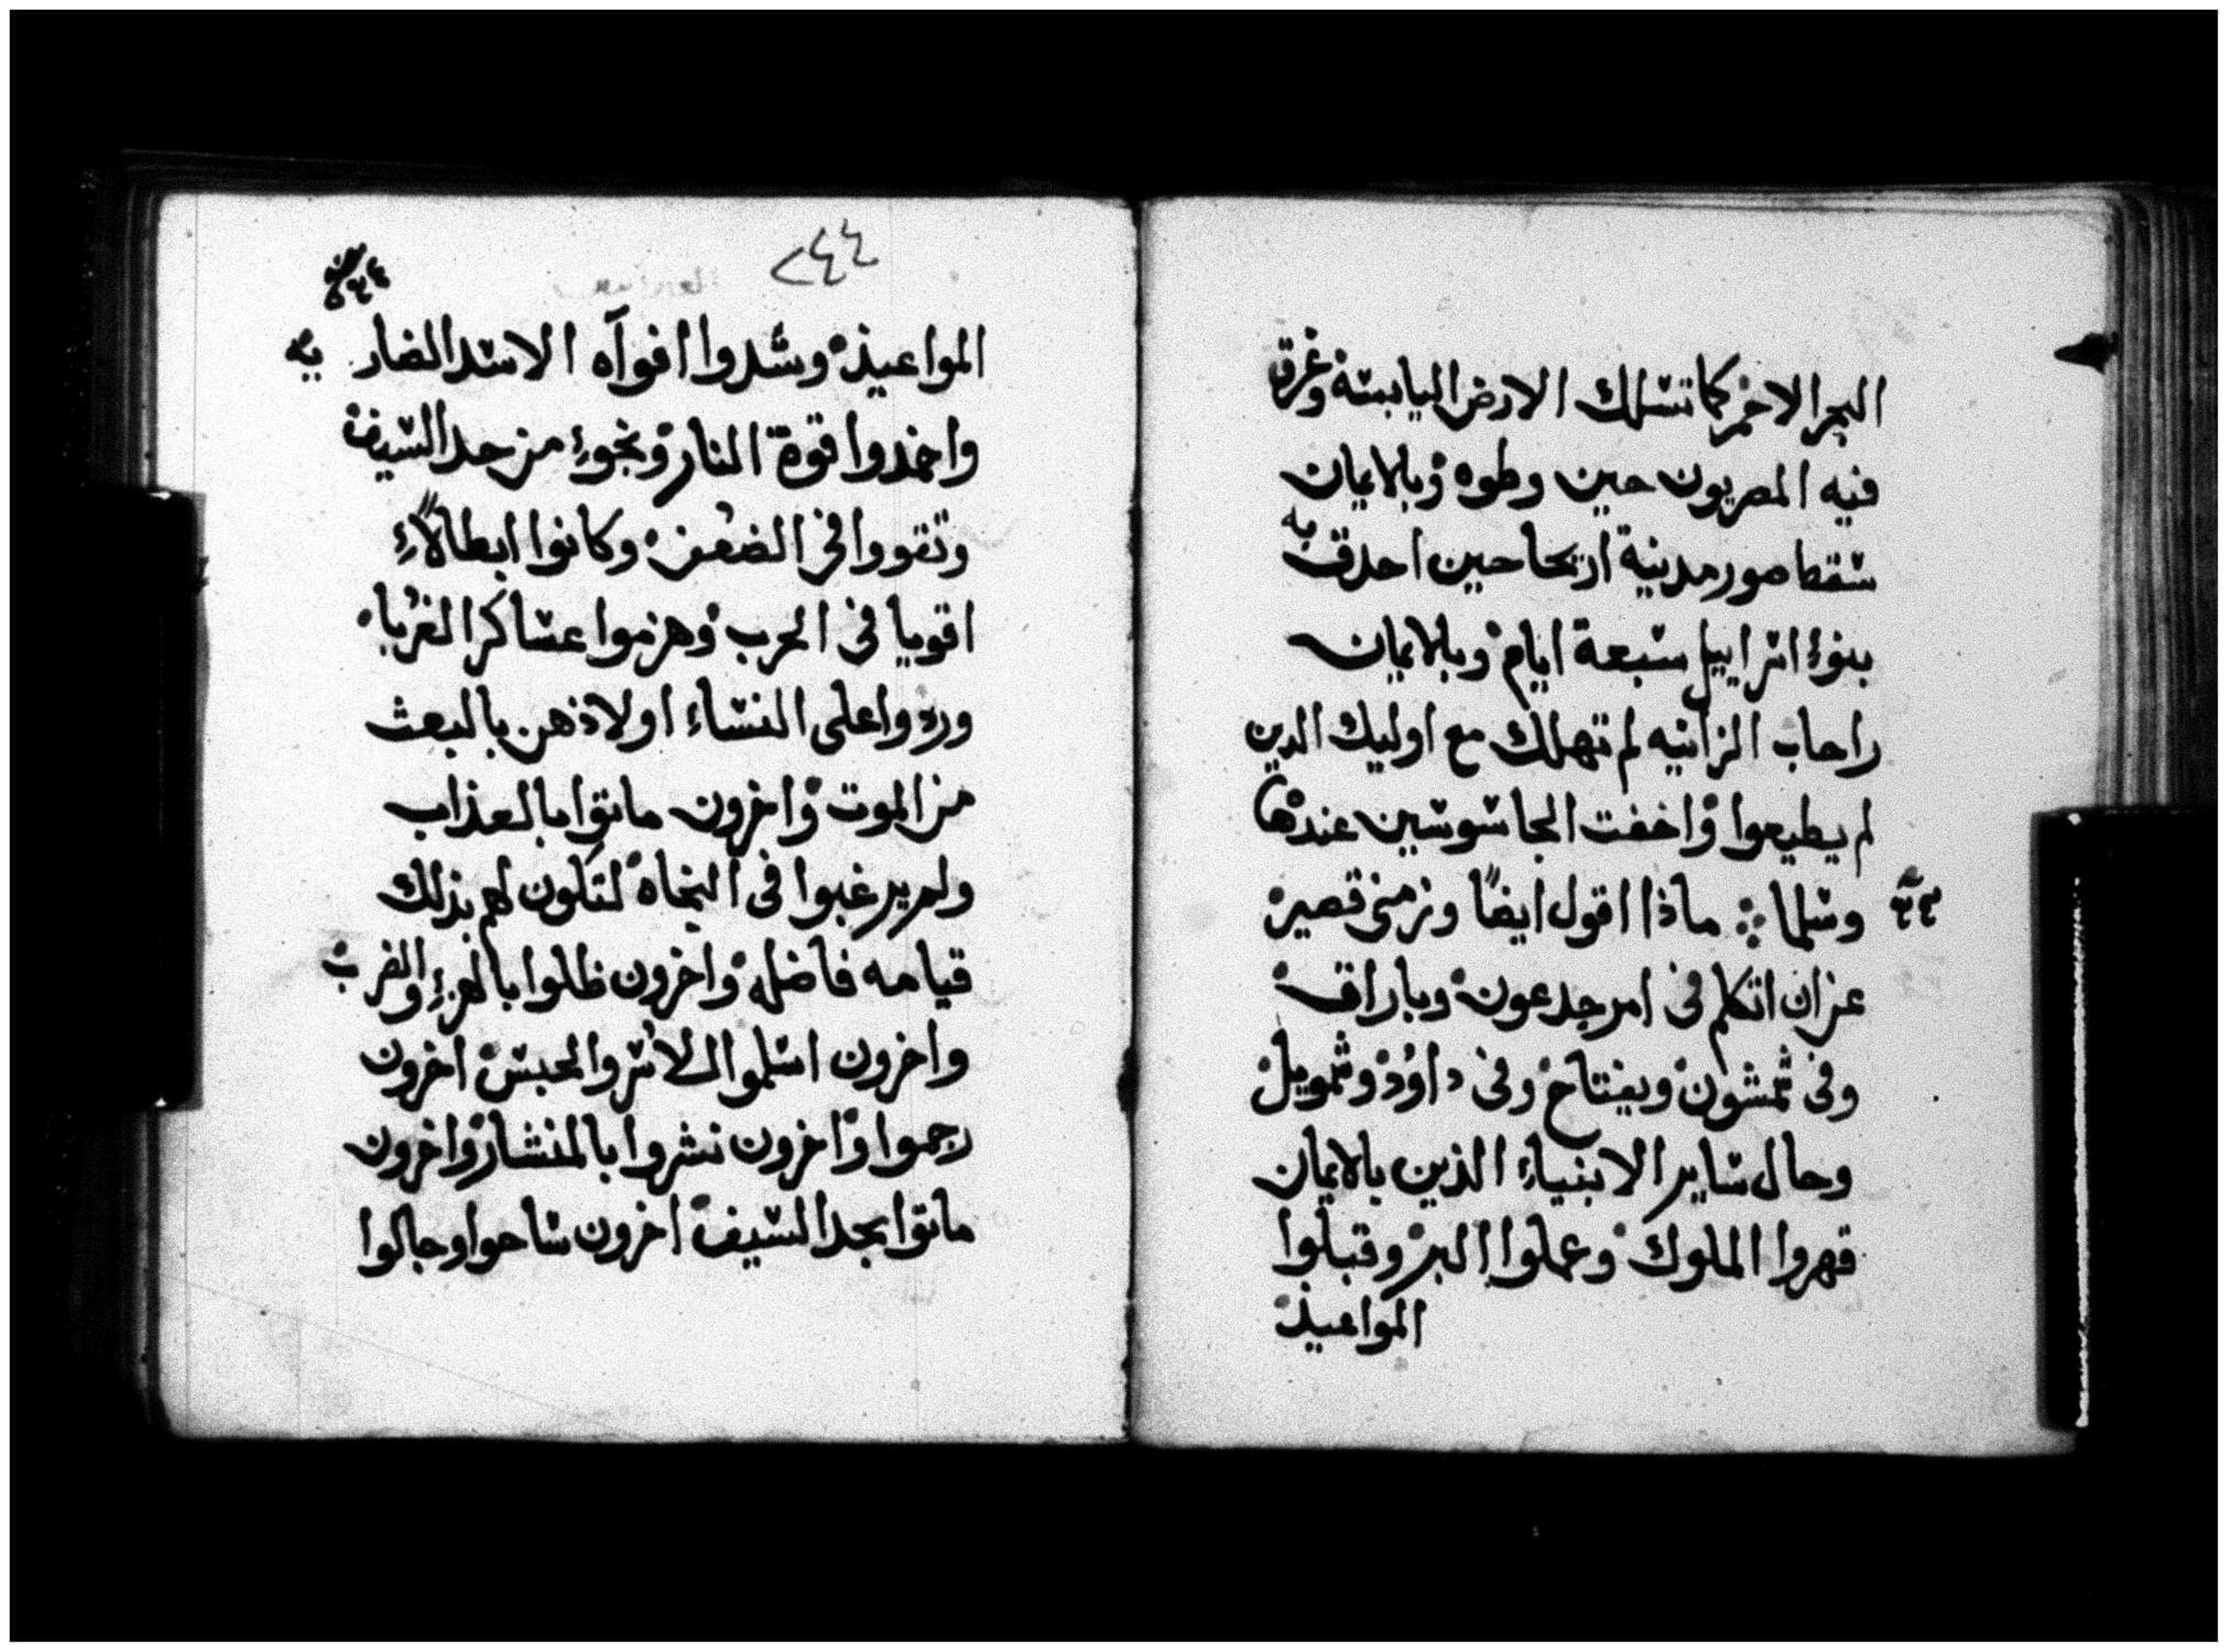 البحر الاحمر كما تسلك الارض اليابسه وغرق
فيه المصريون حين وطوه وبالايمان
سقط صور مدينة اريحا حين احدق به
بنوء اسراييل سبعة ايام وبالايمان
راحاب الزانيه لم تهلك مع اوليك الدين
لم يطيعوا واخفت الجاسوسين عندها
وسلما ماذا اقول ايضًا وزمنى قصير
عن ان اتكلم فى امر جدعون وباراق
وفى شمشون ويفتاح وفى داوُد وشمويل
وحال ساير الانبياء الذين بالايمان
قهروا الملوك وعملوا البر وقبلوا
المواعيد
٢٤٤
المواعيد وسُدوا افوآه الاسد الضاريه
واخمدوا قوة النار ونجوء من حد السيف
وتقووا فى الضعف وكانوا ابطالاًء
اقويا فى الحرب وهزموا عساكر الغربا
وردوا على النساء اولادهن بالبعث
من الموت واخرون ماتوا بالعذاب
ولم يرغبوا فى النجاه لتكون لهم بذلك
قيامه فاضله واخرون ظلوا بالهزء والضرب
واخرون اسلموا للاسر والحبس اخرون
رجموا واخرون نشروا بالمنشار واخرون
ماتوا بحد السيف اخرون ساحوا وجالوا